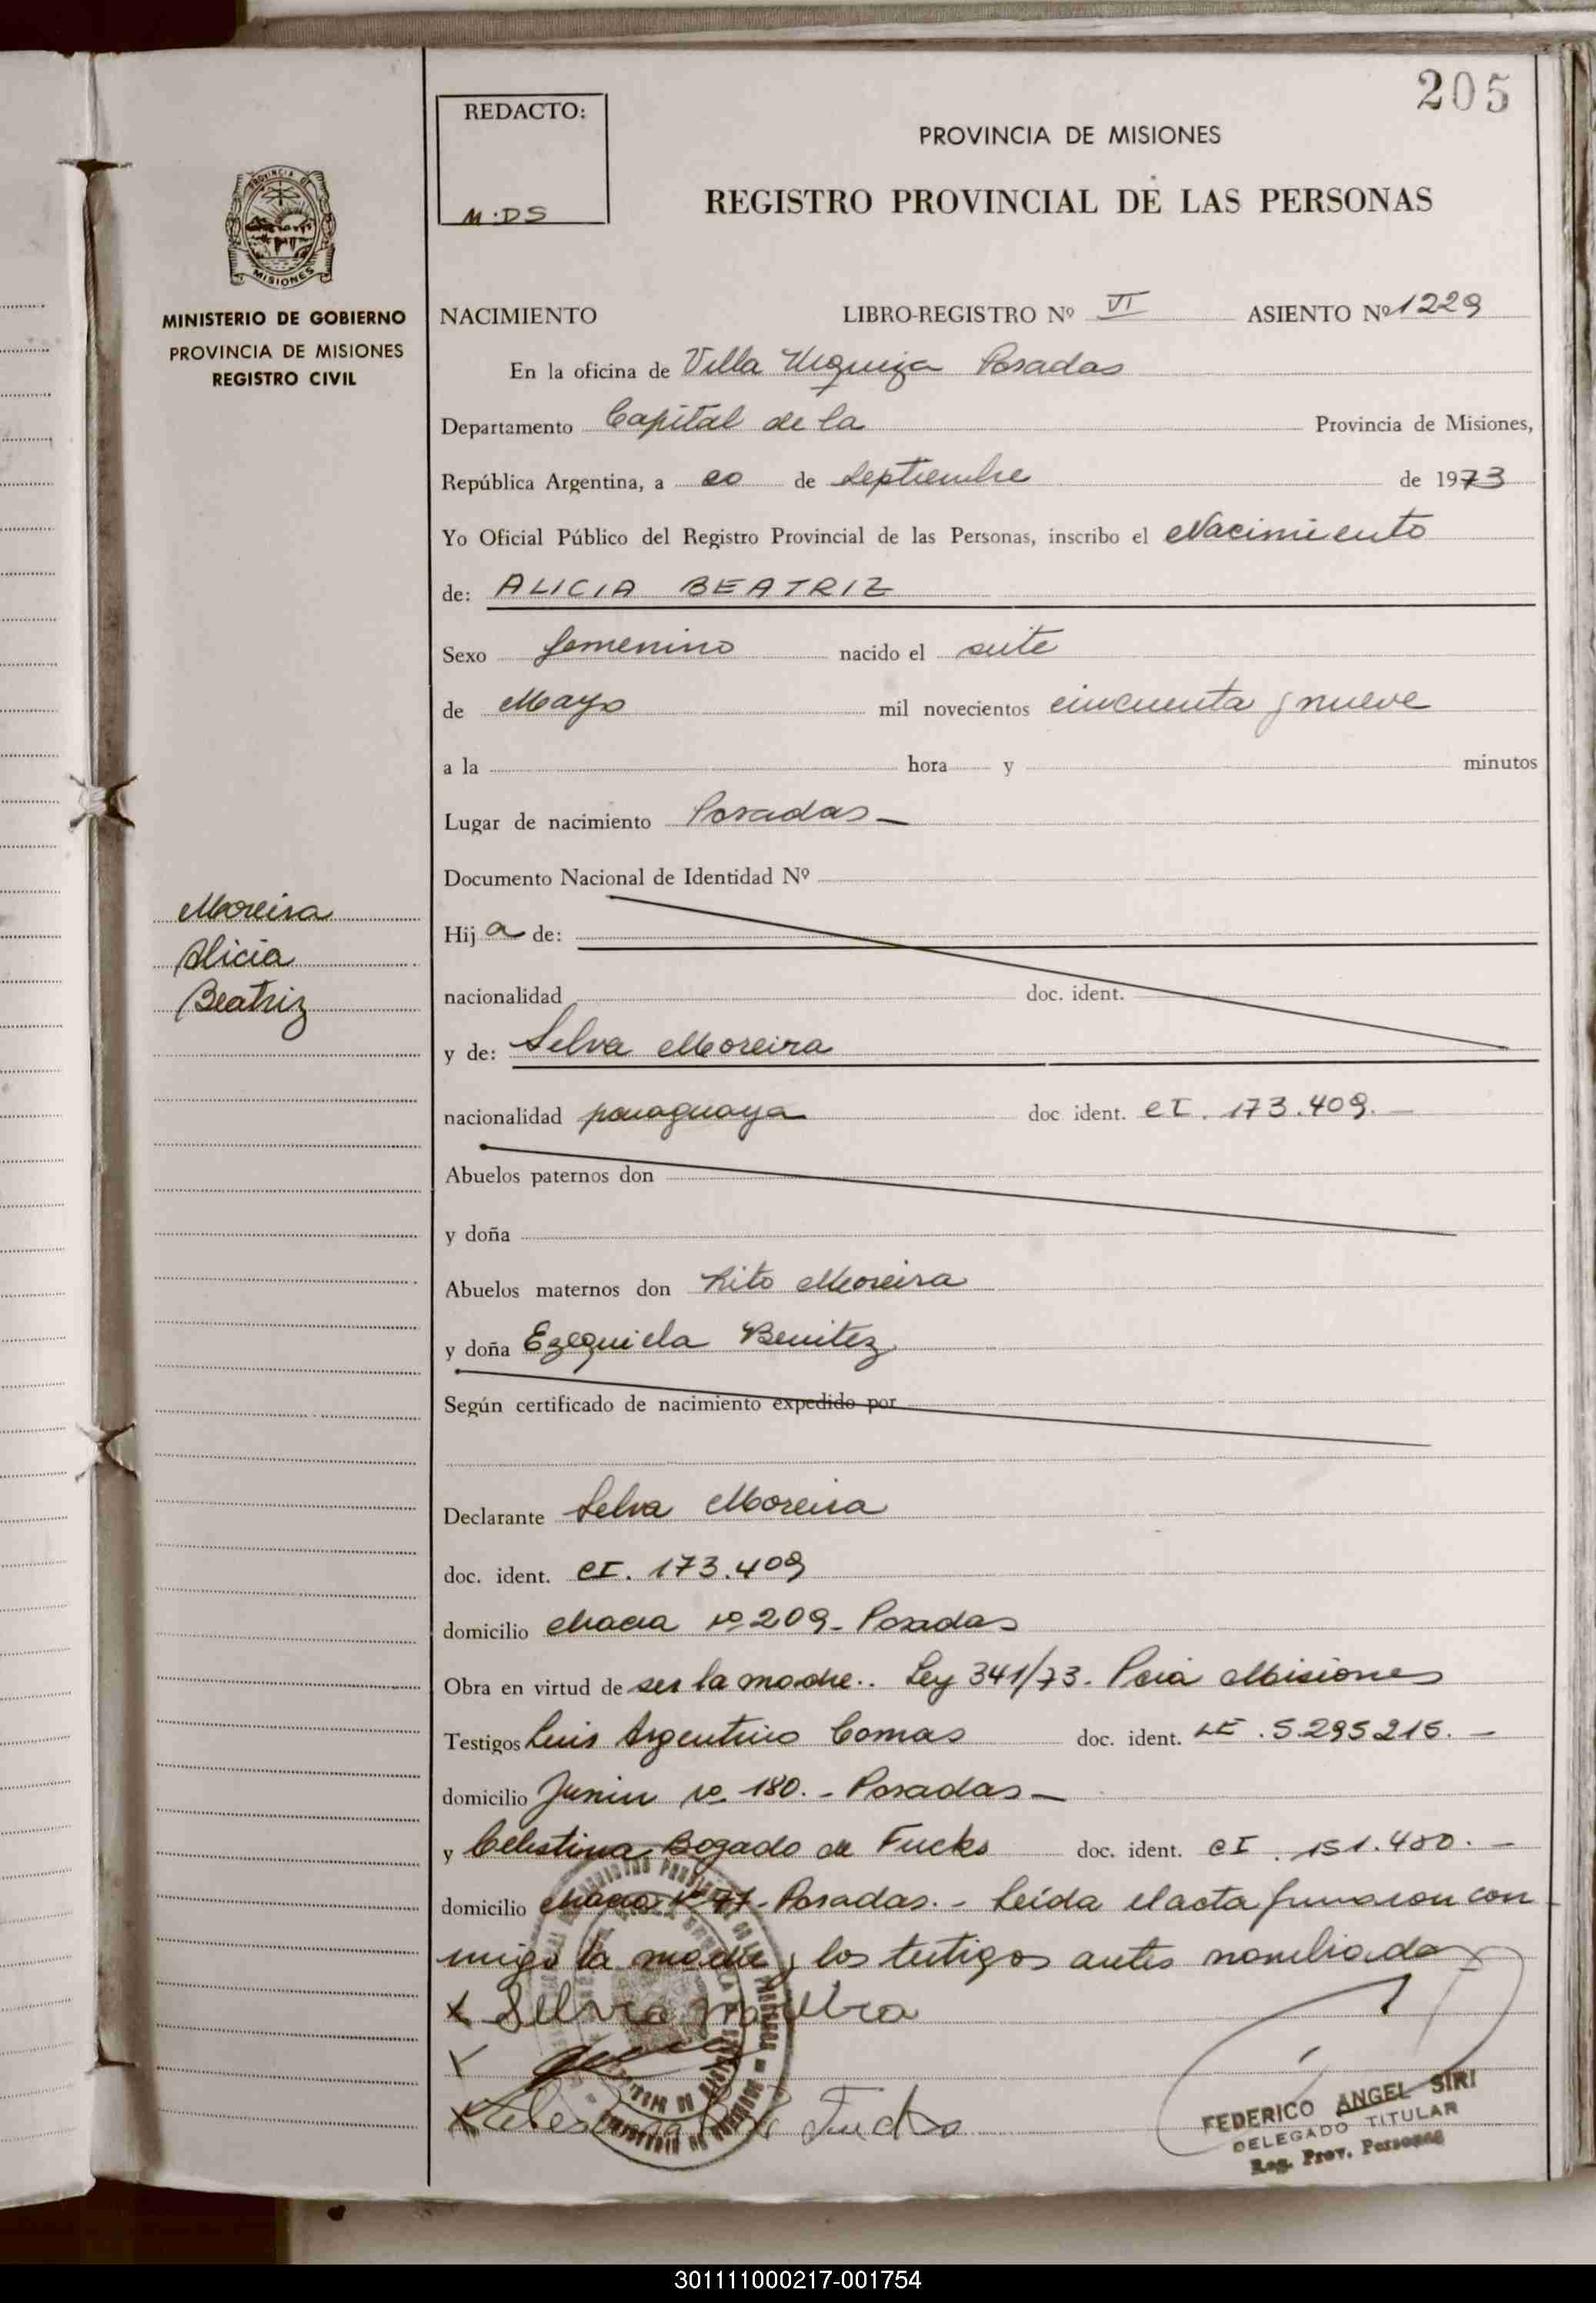 205
REDACTO:
M.DS
PROVINCIA DE MISIONES
REGISTRO PROVINCIAL DE LAS PERSONAS
PROVINCIA DE
MISIONES
MINISTERIO DE GOBIERNO
PROVINCIA DE MISIONES
REGISTRO CIVIL
NACIMIENTO LIBRO-REGISTRO Nº VI ASIENTO Nº 1229
En la oficina de Villa Urquiza Posadas
Departamento Capital de la Provincia de Misiones,
República Argentina, a 20 de Septiembre de 1973
Yo Oficial Público del Registro Provincial de las Personas, inscribo el Nacimiento
de: ALICIA BEATRIZ
Sexo femenino nacido el siete
de Mayo mil novecientos cincuenta y nueve
a la hora y minutos
Lugar de nacimiento Posadas
Documento Nacional de Identidad Nº
Moreira
Alicia
Beatriz
Hija de:
nacionalidad doc. ident.
y de: Selva Moreira
nacionalidad paraguaya doc ident. CI. 173.409.
Abuelos paternos don
y doña
Abuelos maternos don Rito Moreira
y doña Ezequiela Benitez
Según certificado de nacimiento expedido por
Declarante Selva Moreira
doc. ident. CI. 173.409
domicilio Chacra nº 209- Posadas
Obra en virtud de ser la madre.. Ley 341/73. Pcia Misiones
Testigos Luis Argentino Comas doc. ident. LE. 5.295215.
domicilio Junin nº 180. - Posadas
y Celestina Bogado de Fucks doc. ident. CI. 151.480.
domicilio Chacra Nº 77- Posadas. - Leída el acta firmaron con
migo la madre y los testigos antes nombrados
x Selva
x
x Fucks
FEDERICO ANGEL SIRI
DELEGADO TITULAR
Reg. Prov. Personas
301111000217-001754